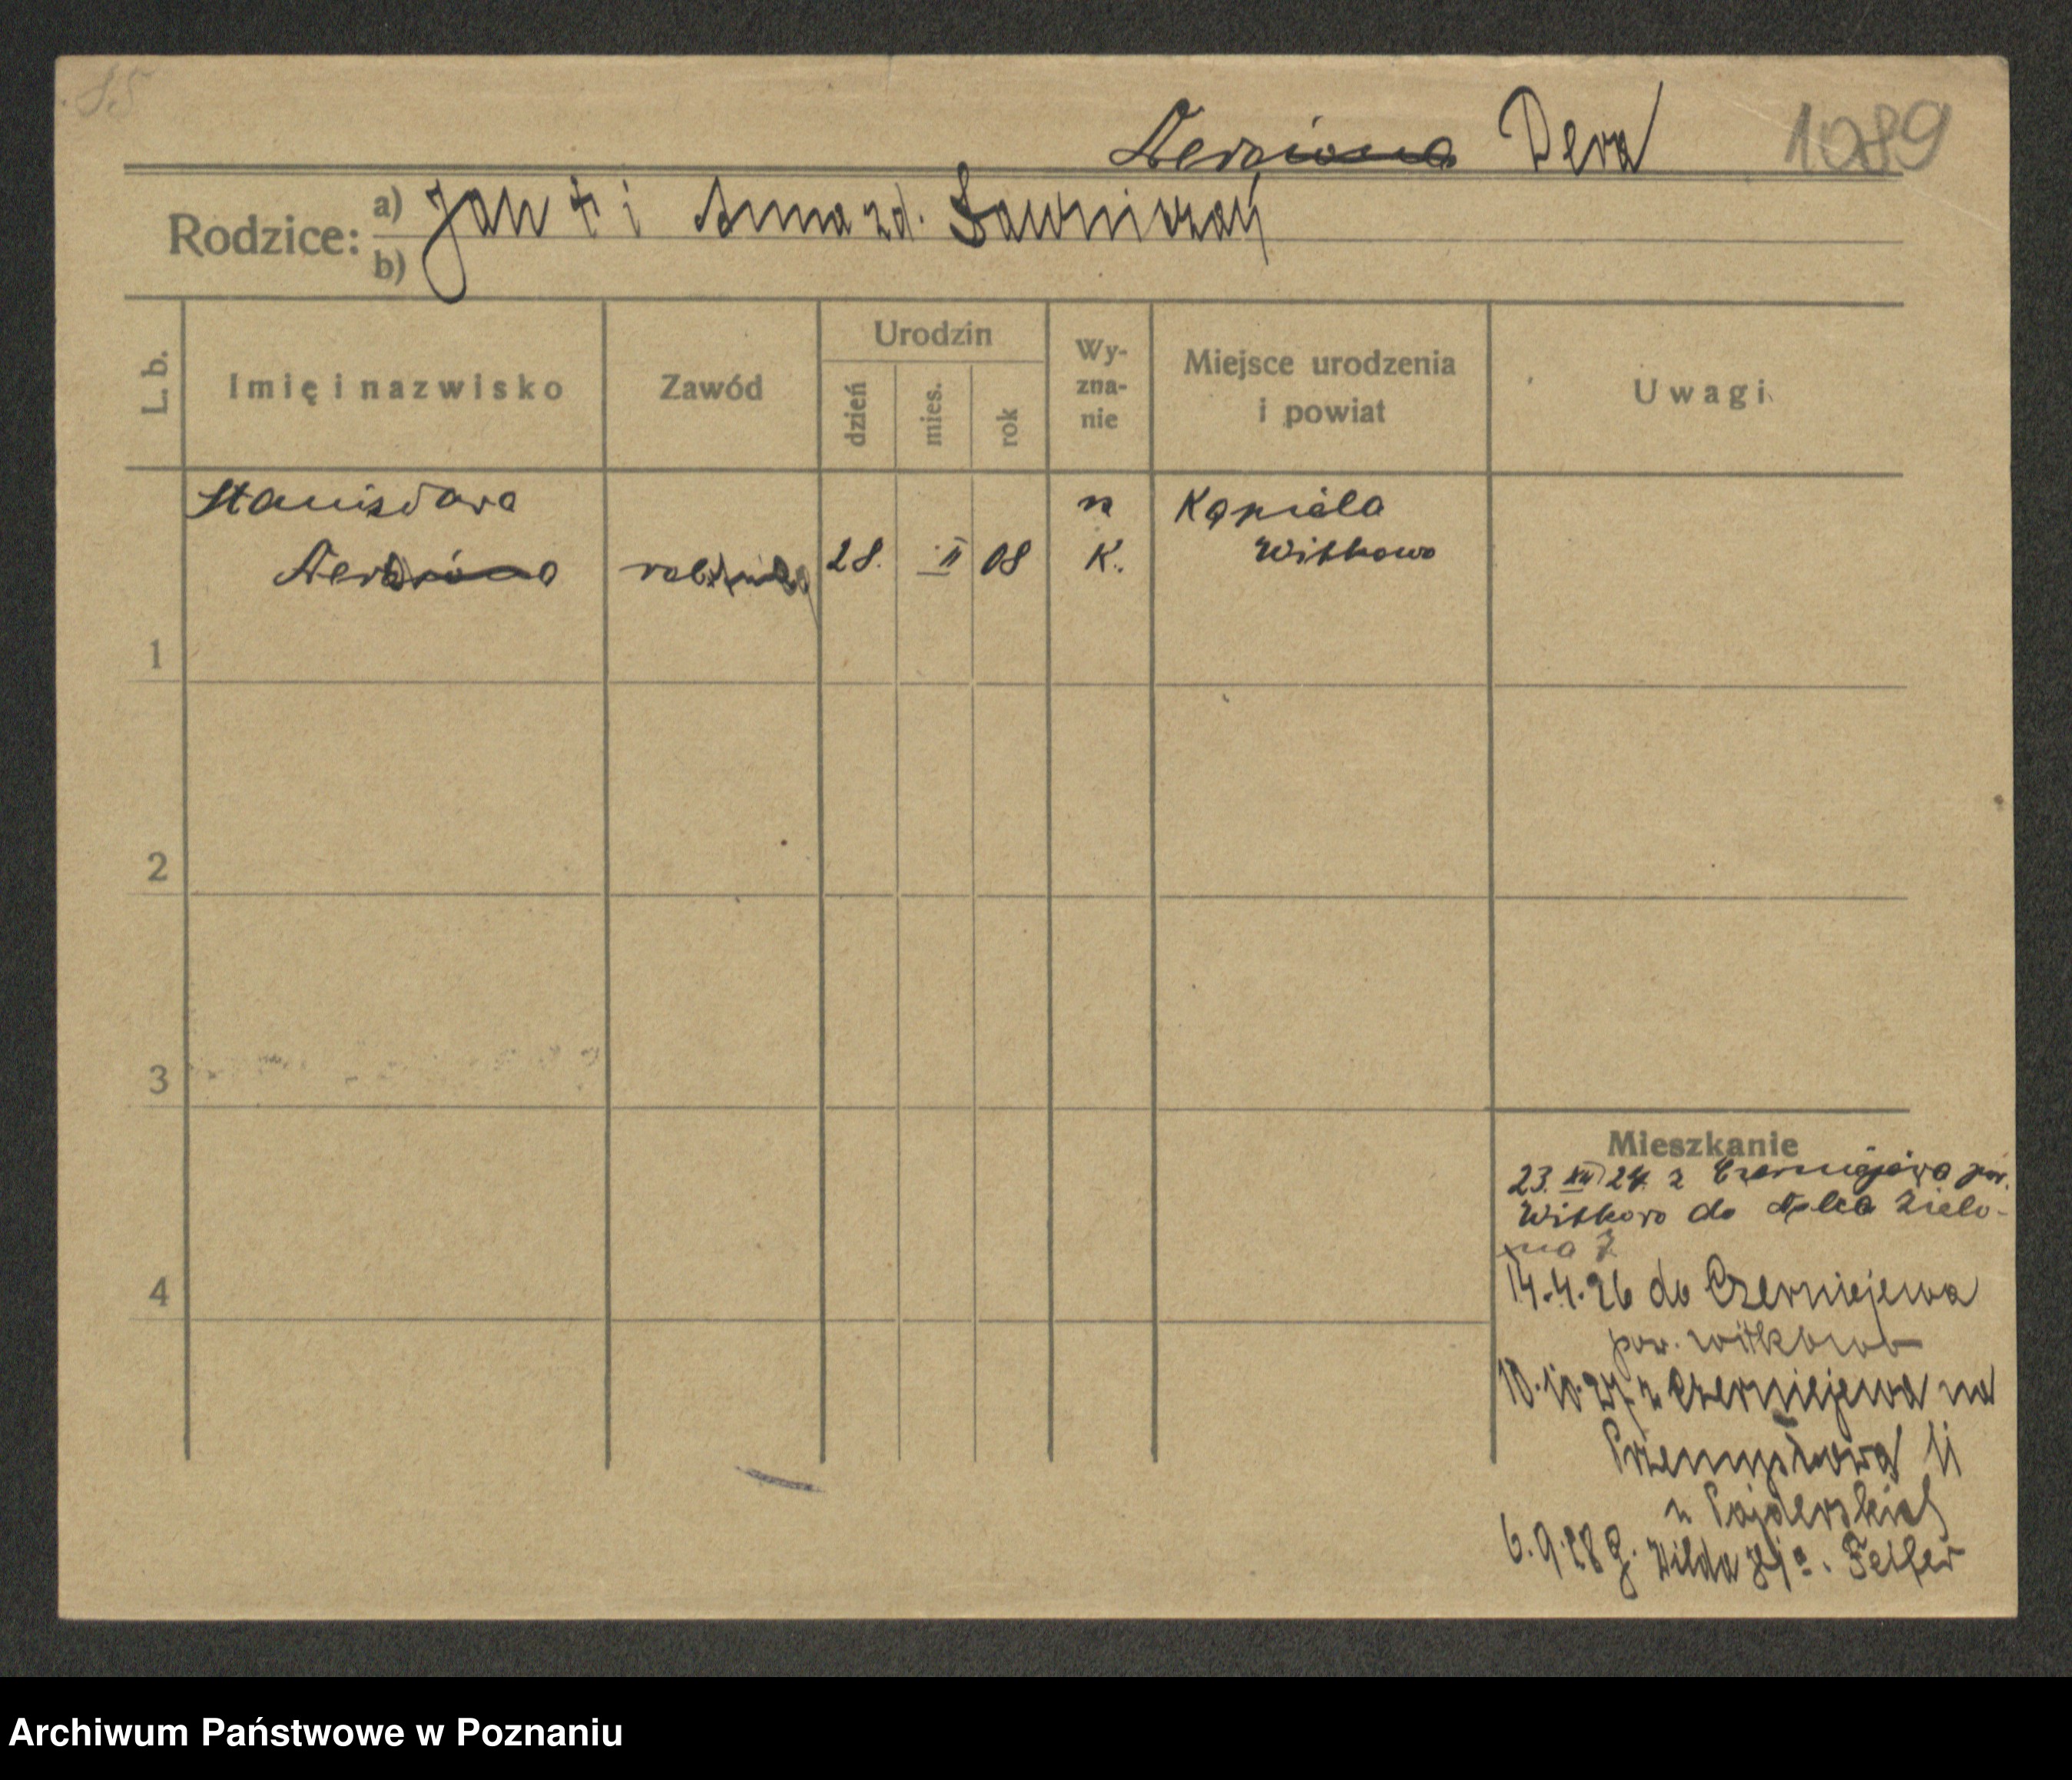 35
Derziona Dera 1089
Rodzice: a) Jan † i Anna zd. Ławniczak
b)
L. b. Imię i nazwisko Zawód Urodzin dzień mies. rok Wy-zna-nie Miejsce urodzenia i powiat Uwagi
Stanisława n Kąpiela
28. II 08 K. Witkowo
1
2
3
4
Mieszkanie
23. XII 24. z Czerniejewa pow.
Witkowo do Zielo-
na 7
14.4.26 do Czerniejewa
pow. Witkowo
10.10.27 z Czerniejewa na
Przemysłową 11
u Pajderskich
6.9.28 G. Wilda Feifer
Archiwum Państwowe w Poznaniu